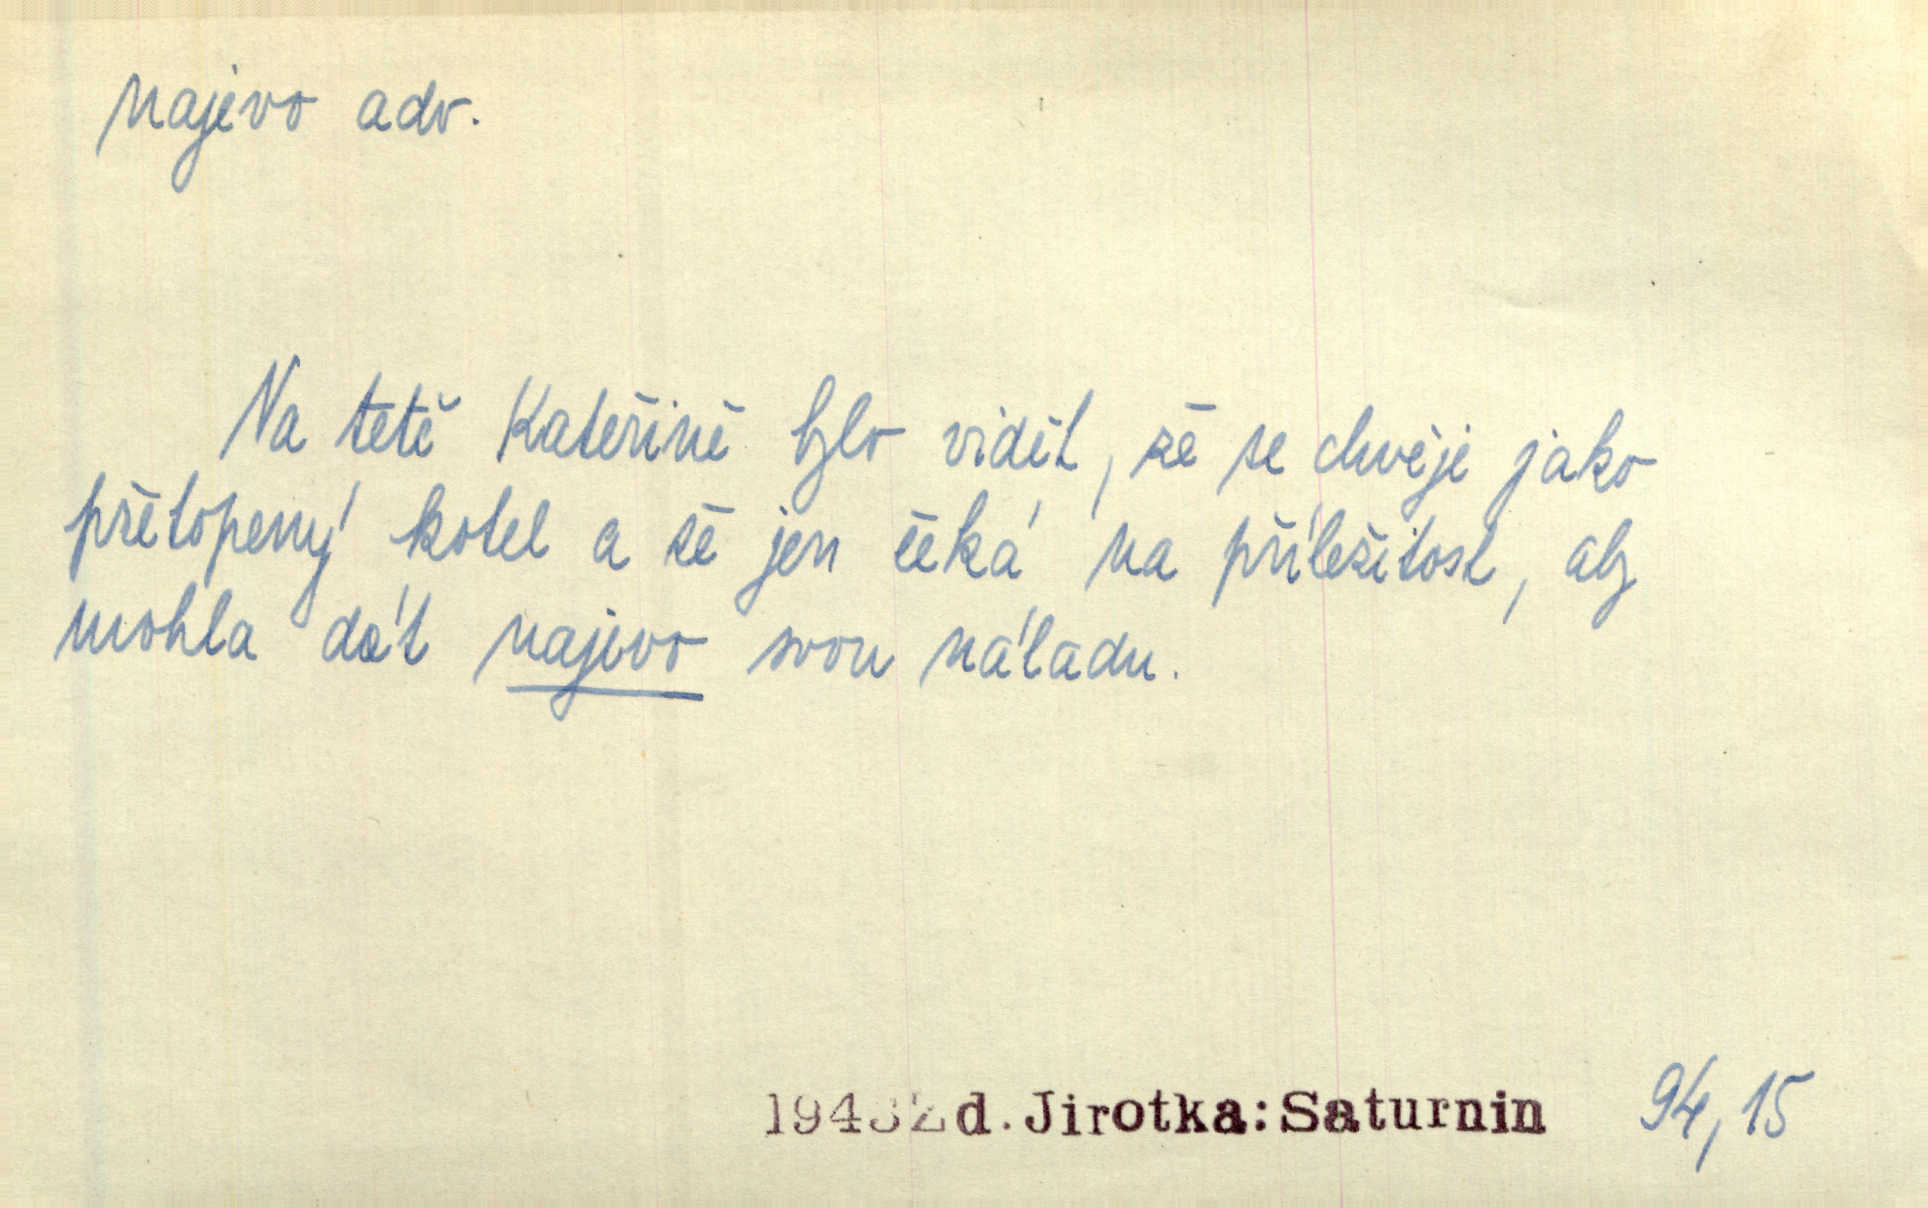 najevo adv.
Na tetě Kateřině bylo vidět, že se chvěje jako
přetopený kotel a že jen čeká na příležitost, aby
mohla dát najevo svou náladu.
1943 Zd. Jirotka: Saturnin 94,15